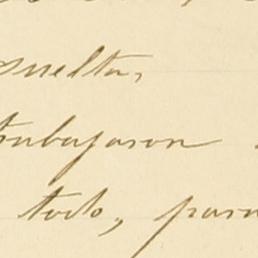 suelta,
trabajaron
todo, para